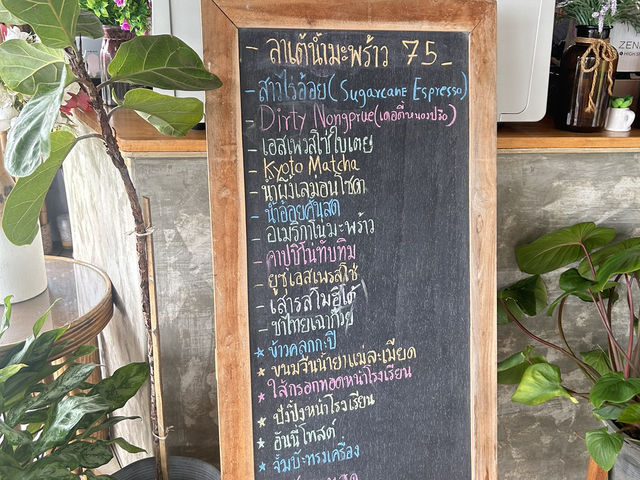 - ลาเต้น้ำมะพร้าว 75_
- สาวไร่อ้อย (Sugarcane Espresso)
- Dirty Nongprue (เดอตี้หนองปรือ)
- เอสเพรสโซ่ใบเตย
- Kyoto Matcha
- น้ำผึ้งเลมอนโซดา
- น้ำอ้อยคั้นสด
- อเมริกาโน่มะพร้าว
- คาปูชิโน่ทับทิม
- ยูซุเอสเพรสโซ่
- เสาวรสโมฮีโต้
- ชาไทยเฉาก๊วย
* ข้าวคลุกกะปิ
* ขนมจีนน้ำยาแม่ละเมียด
* ไส้กรอกทอดหน้าโรงเรียน
* ปังปิ้งหน้าโรงเรียน
* ฮันนี่โทสต์
* จั๊มบ๊ะทรงเครื่อง
ZEN